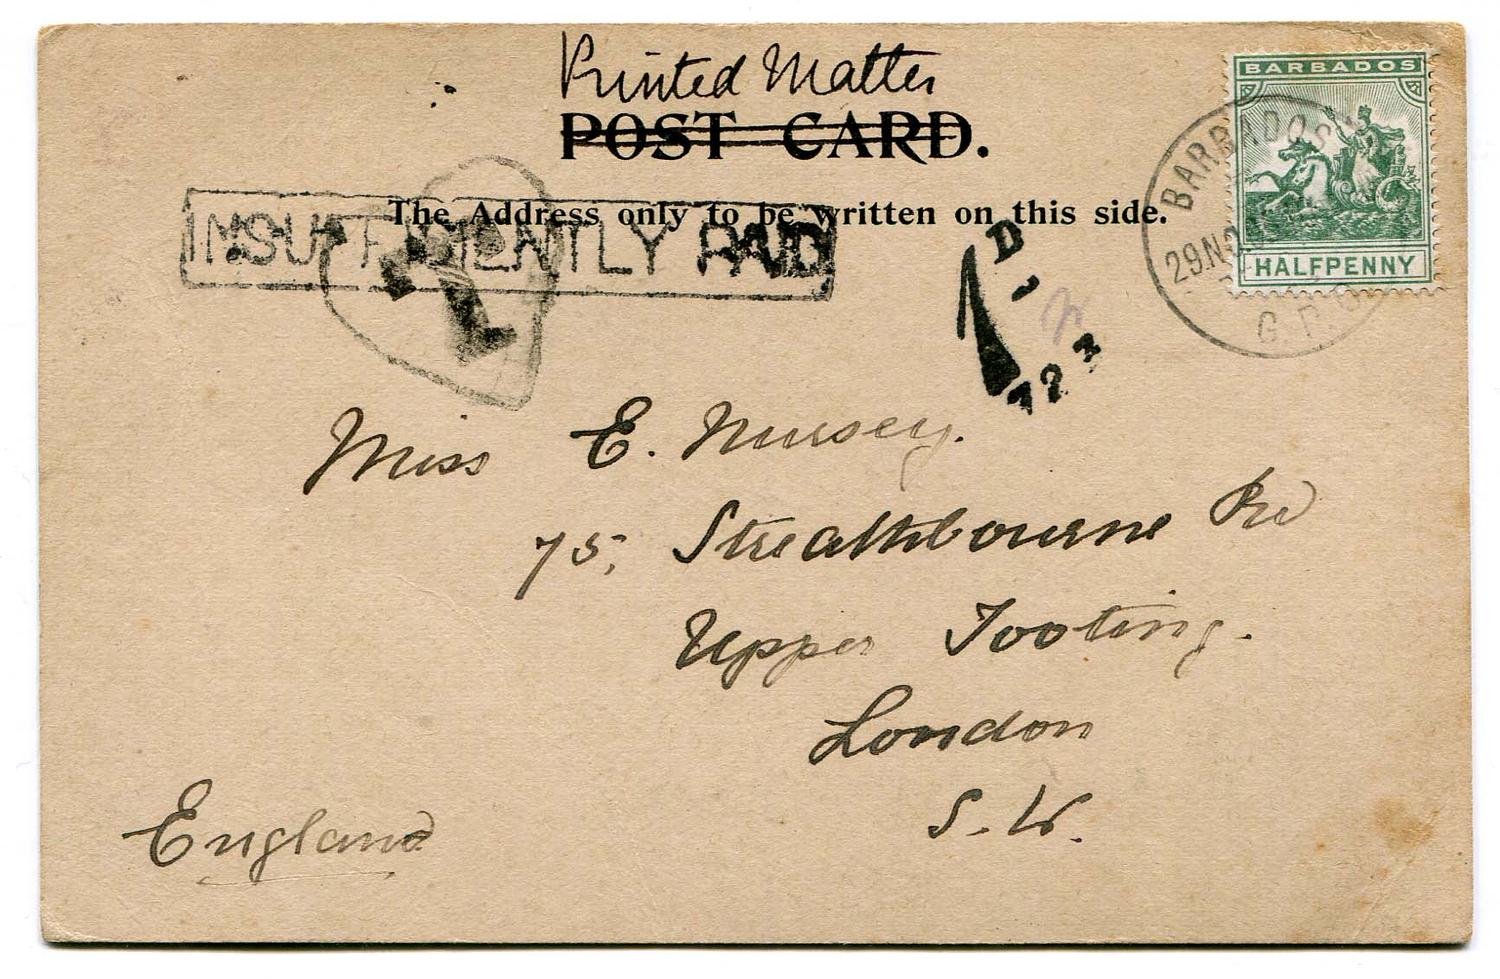 Printed Matter
POST CARD.
The Address only to be written on this side.
INSUFFICIENTLY PAID
T
1D
723
BARBADOS
HALFPENNY
BARBADOS
29 NO
G.P.O
Miss E. Nursey.
75, Streathbourne Rd
Upper Tooting.
London
S.W.
England